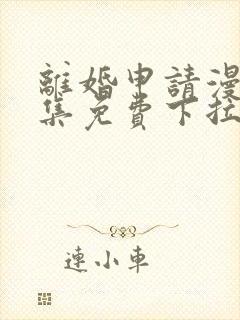 離婚申請漫
集免費下拉
連小車